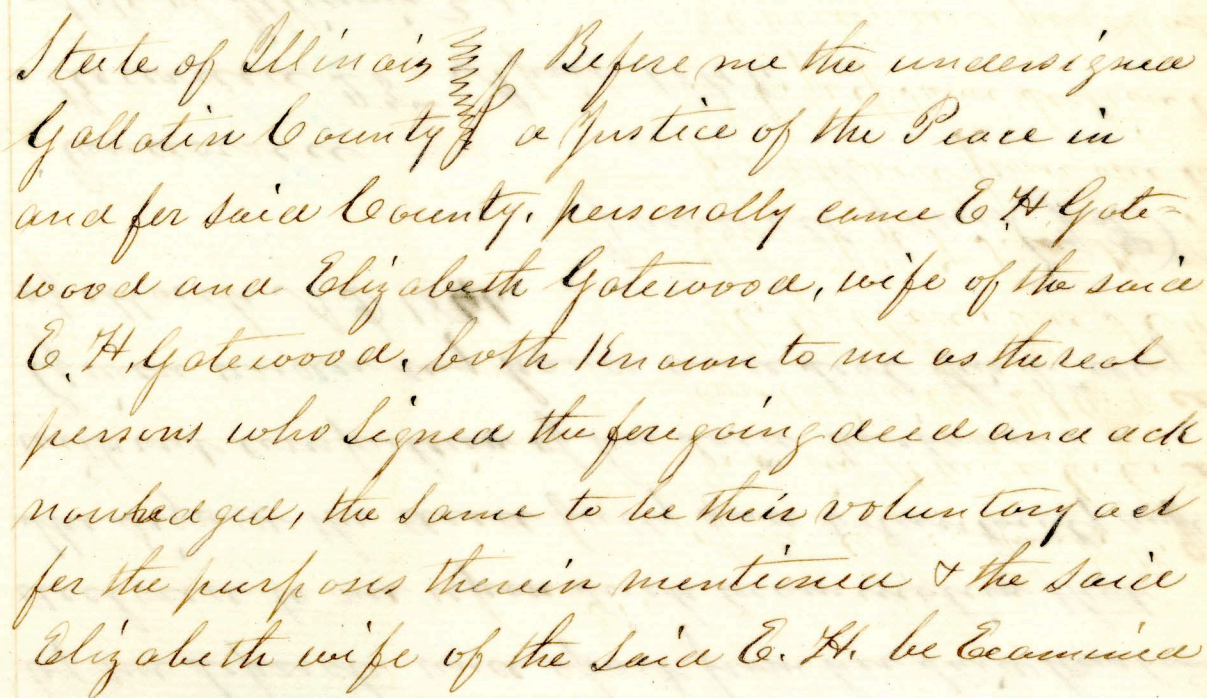 State of Illinois } Before me the undersigned
Gallatin County } a Justice of the Peace in
and for said County, personally came E. H. Gate=
wood and Elizabeth Gatewood, wife of the said
E. H. Gatewood, both Known to me as the real
persons who Signed the foregoing deed and ack
nowledged, the same to be their voluntary act
for the purposes therein mentioned & the said
Elizabeth wife of the said E. H. be Examined